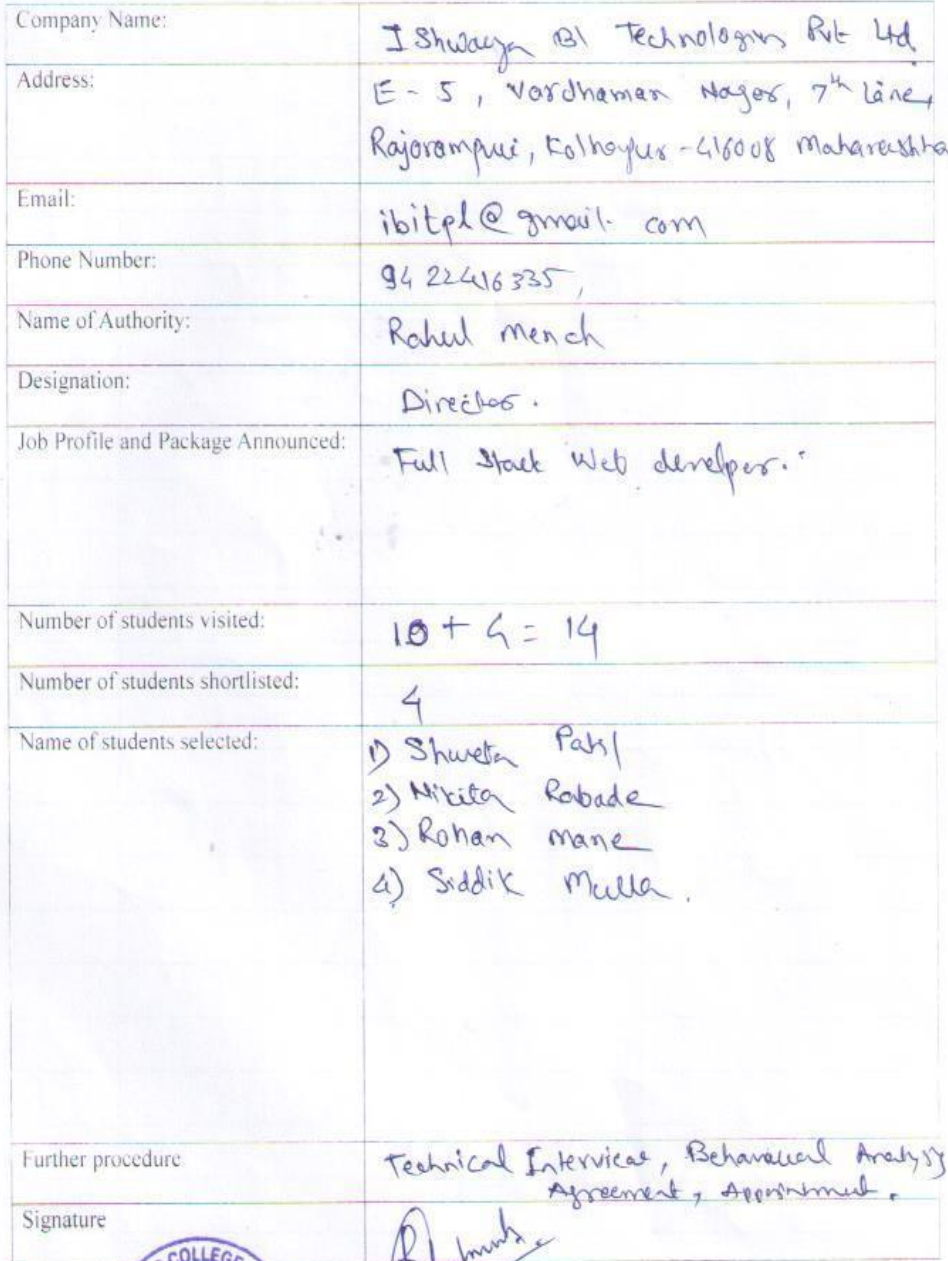 Company Name: I Shwarya BI Technologies Pvt Ltd.
Address: E - 5, Vardhaman Nager, 7th Lane,
Rajarampuri, Kolhapur - 416008 Maharashtra
Email: ibitpl@gmail.com
Phone Number: 9422416335,
Name of Authority: Rahul Mench
Designation: Director.
Job Profile and Package Announced: Full Stack Web develper.
Number of students visited: 10 + 4 = 14
Number of students shortlisted: 4
Name of students selected: 1) Shweta Patil
2) Nikita Rabade
3) Rohan Mane
4) Siddik Mulla.
Further procedure Technical Interview, Behavioural Analysis
Agreement, Appointment.
Signature
COLLEGE